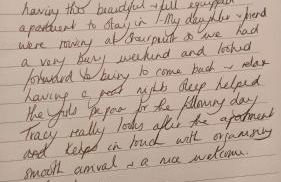 having this beautiful + full equipped
apartment to stay in. My daughter + friend
were rowing at so we had
a very busy weekend and looked
forward to being to come back + relax
having a good nights sleep helped
the girls prepare for the following day
Tracy really looks after the apartment
and keeps in touch with organising
smooth arrival + a nice welcome.